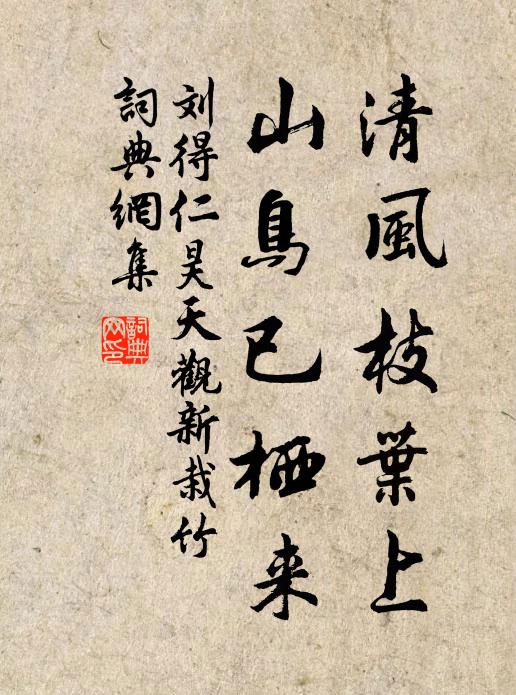 清風枝葉上
山鳥已栖来
刘得仁昊天觀新栽竹
詞典網集
詞典
网印